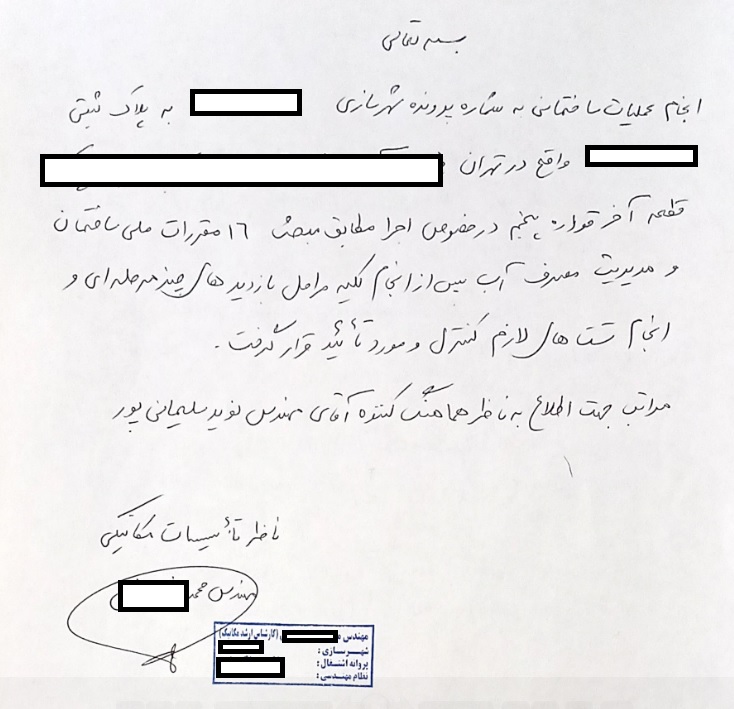 بسمه تعالی
انجام عملیات ساختمانی به شماره پرونده شهرسازی به پلاک ثبتی
واقع در تهران
قطعه آخر قواره پنجم در خصوص اجرا مطابق مبحث ۱۶ مقررات ملی ساختمان
و مدیریت مصرف آب پس از انجام کلیه مراحل بازدیدهای چند مرحله‌ای و
انجام تست‌های لازم کنترل و مورد تأیید قرار گرفت.
مراتب جهت اطلاع به ناظر هماهنگ کننده آقای مهندس نوید سلیمانی پور
ناظر تأسیسات مکانیکی
مهندس محمد
مهندس (کارشناس ارشد مکانیک)
شهرسازی :
پروانه اشتغال :
نظام مهندسی :